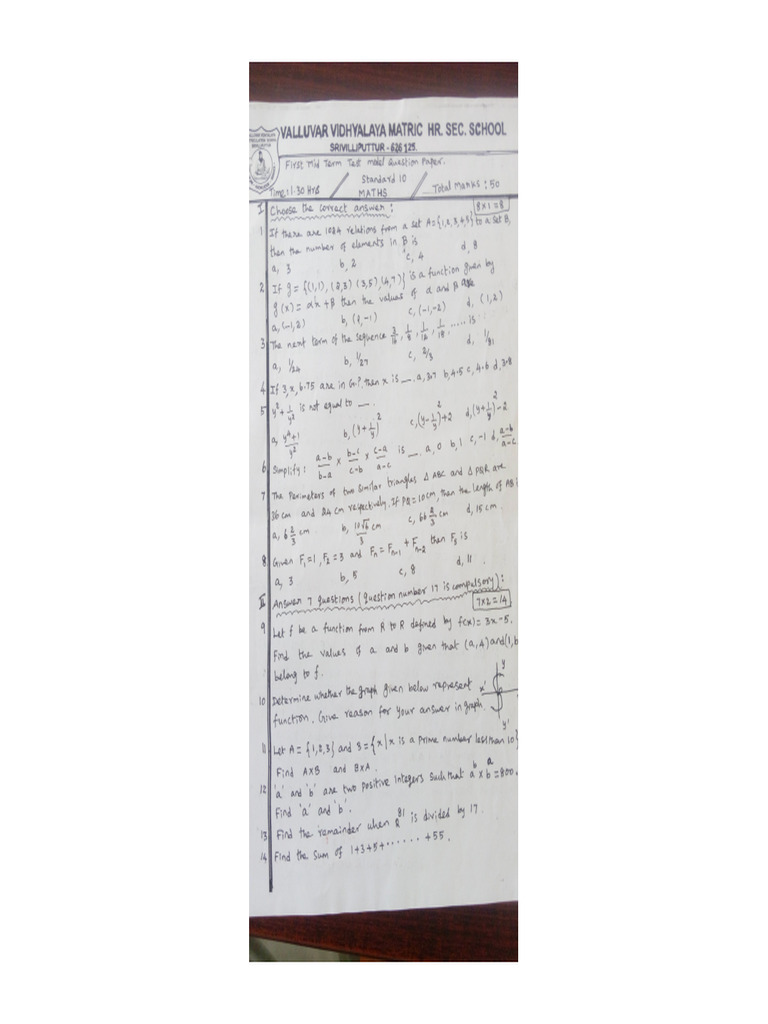 VALLUVAR VIDHYALAYA MATRIC HR. SEC. SCHOOL
SRIVILLIPUTTUR - 626 125.
First Mid Term Test Model Question Paper.
Time: 1.30 Hrs / Standard 10 / Total Marks: 50
MATHS
I Choose the correct answer: 8×1=8
1 If there are 1024 relations from a set A={1,2,3,4,5} to a set B,
then the number of elements in B is
a, 3 b, 2 c, 4 d, 8
2 If g = {(1,1), (2,3) (3,5), (4,7)} is a function given by
g(x) = αx+β then the values of α and β are
a, (-1,2) b, (2,-1) c, (-1,-2) d, (1,2)
3 The next term of the sequence 3/16, 1/8, 1/12, 1/18, ..... is
a, 1/24 b, 1/27 c, 2/3 d, 1/81
4 If 3, x, 6.75 are in G.P, then x is __. a, 3.7 b, 4.5 c, 4.6 d, 3.8
5 y²+1/y² is not equal to __.
a, y⁴+1/y² b, (y+1/y)² c, (y-1/y)²+2 d, (y+1/y)²-2
6 Simplify: a-b/b-a × b-c/c-b × c-a/a-c is __. a, 0 b, 1 c, -1 d, a-b/a-c
7 The Perimeters of two similar triangles Δ ABC and Δ PQR are
36 cm and 24 cm respectively. If PQ = 10 cm, then the length of AB is
a, 6 2/3 cm b, 10√6/3 cm c, 66 2/3 cm d, 15 cm.
8 Given F₁=1, F₂=3 and Fₙ=Fₙ₋₁+Fₙ₋₂ then F₅ is
a, 3 b, 5 c, 8 d, 11.
II Answer 7 questions (Question number 17 is compulsory):
7×2=14
9 Let f be a function from R to R defined by f(x) = 3x-5.
Find the values of a and b given that (a,4) and (1,b
belong to f.
10 Determine whether the graph given below represent
function. Give reason for your answer in graph.
y
x'
y'
11 Let A = {1,2,3} and B = {x|x is a prime number less than 10}
Find A×B and B×A.
12 'a' and 'b' are two positive integers such that aᵇ×bᵃ=800.
Find 'a' and 'b'.
13 Find the remainder when 2⁸¹ is divided by 17.
14 Find the sum of 1+3+5+......+55.